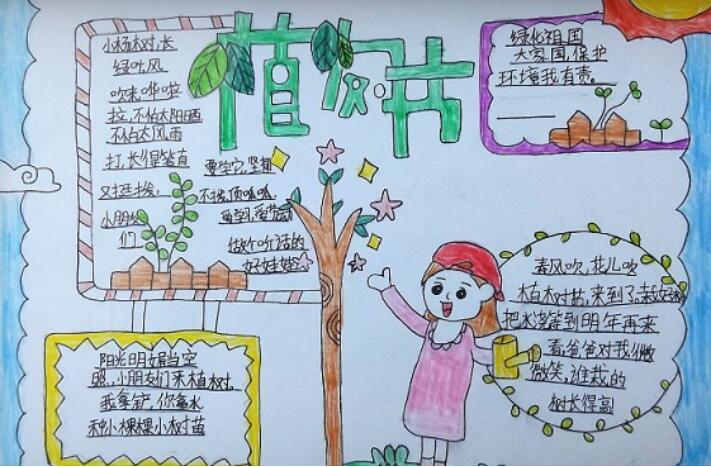 植树节
小杨树,长
绿叶,风
吹来哗啦
拉,不怕太阳晒
不怕大风雨
打,长得笔直
又挺拔,
小朋友
们
要学它,坚强
不拔,顶呱呱,
爱学习,爱劳动
做个听话的
好娃娃
绿化祖国
大家园,保护
环境我有责。
春风吹,花儿吹
植树苗,来到了,栽好树
把水浇等到明年再来
看,爸爸对我微
微笑,谁栽的
树长得高
阳光明媚当空
照,小朋友们来植树,
我拿铲,你拿水
种小棵棵小树苗